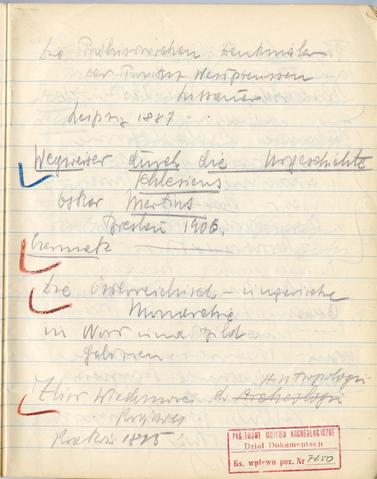 Die Prähistorischen Denkmäler
der Provinz Westpreussen
Lissauer
Leipzig 1887.
Wegweiser durch die Urgeschichte
Schlesiens
Oskar Mertins
Breslau 1906
Die Österreichisch-ungarische
Monarchie
in Wort und Bild
Galizien
Antropologii
Zbiór Wiadomości do Archeologii
Krajowej
Kraków 1885
PAŃSTWOWE MUZEUM ARCHEOLOGICZNE
Dział Dokumentacji
Ks. wpływu poz. Nr 7450